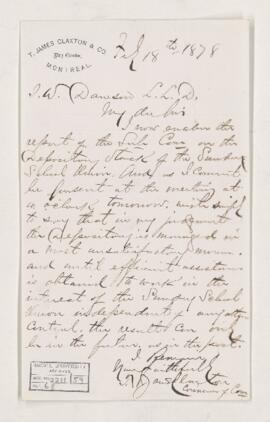 T. JAMES CLAXTON & CO.
Dry Goods,
MONTREAL.
Feb 18th 1878
J. W. Dawson L.L.D.
My dear Sir
I now enclose the
report of the Sub Com on the
Depository Stock of the Sunday
School Union. And as I cannot
be present at the meeting at
o'clock tomorrow,
to say that in my judgment
the Depository is managed in
a most unsatisfactory mann.
and until efficient assistance
is obtained to work in the
interest of the Sunday School
Union independently of any other
control, the results can only
be in the future, as in the past.
I Remain
Yours faithfully
T. James Claxton
Convener of Com
2211 59